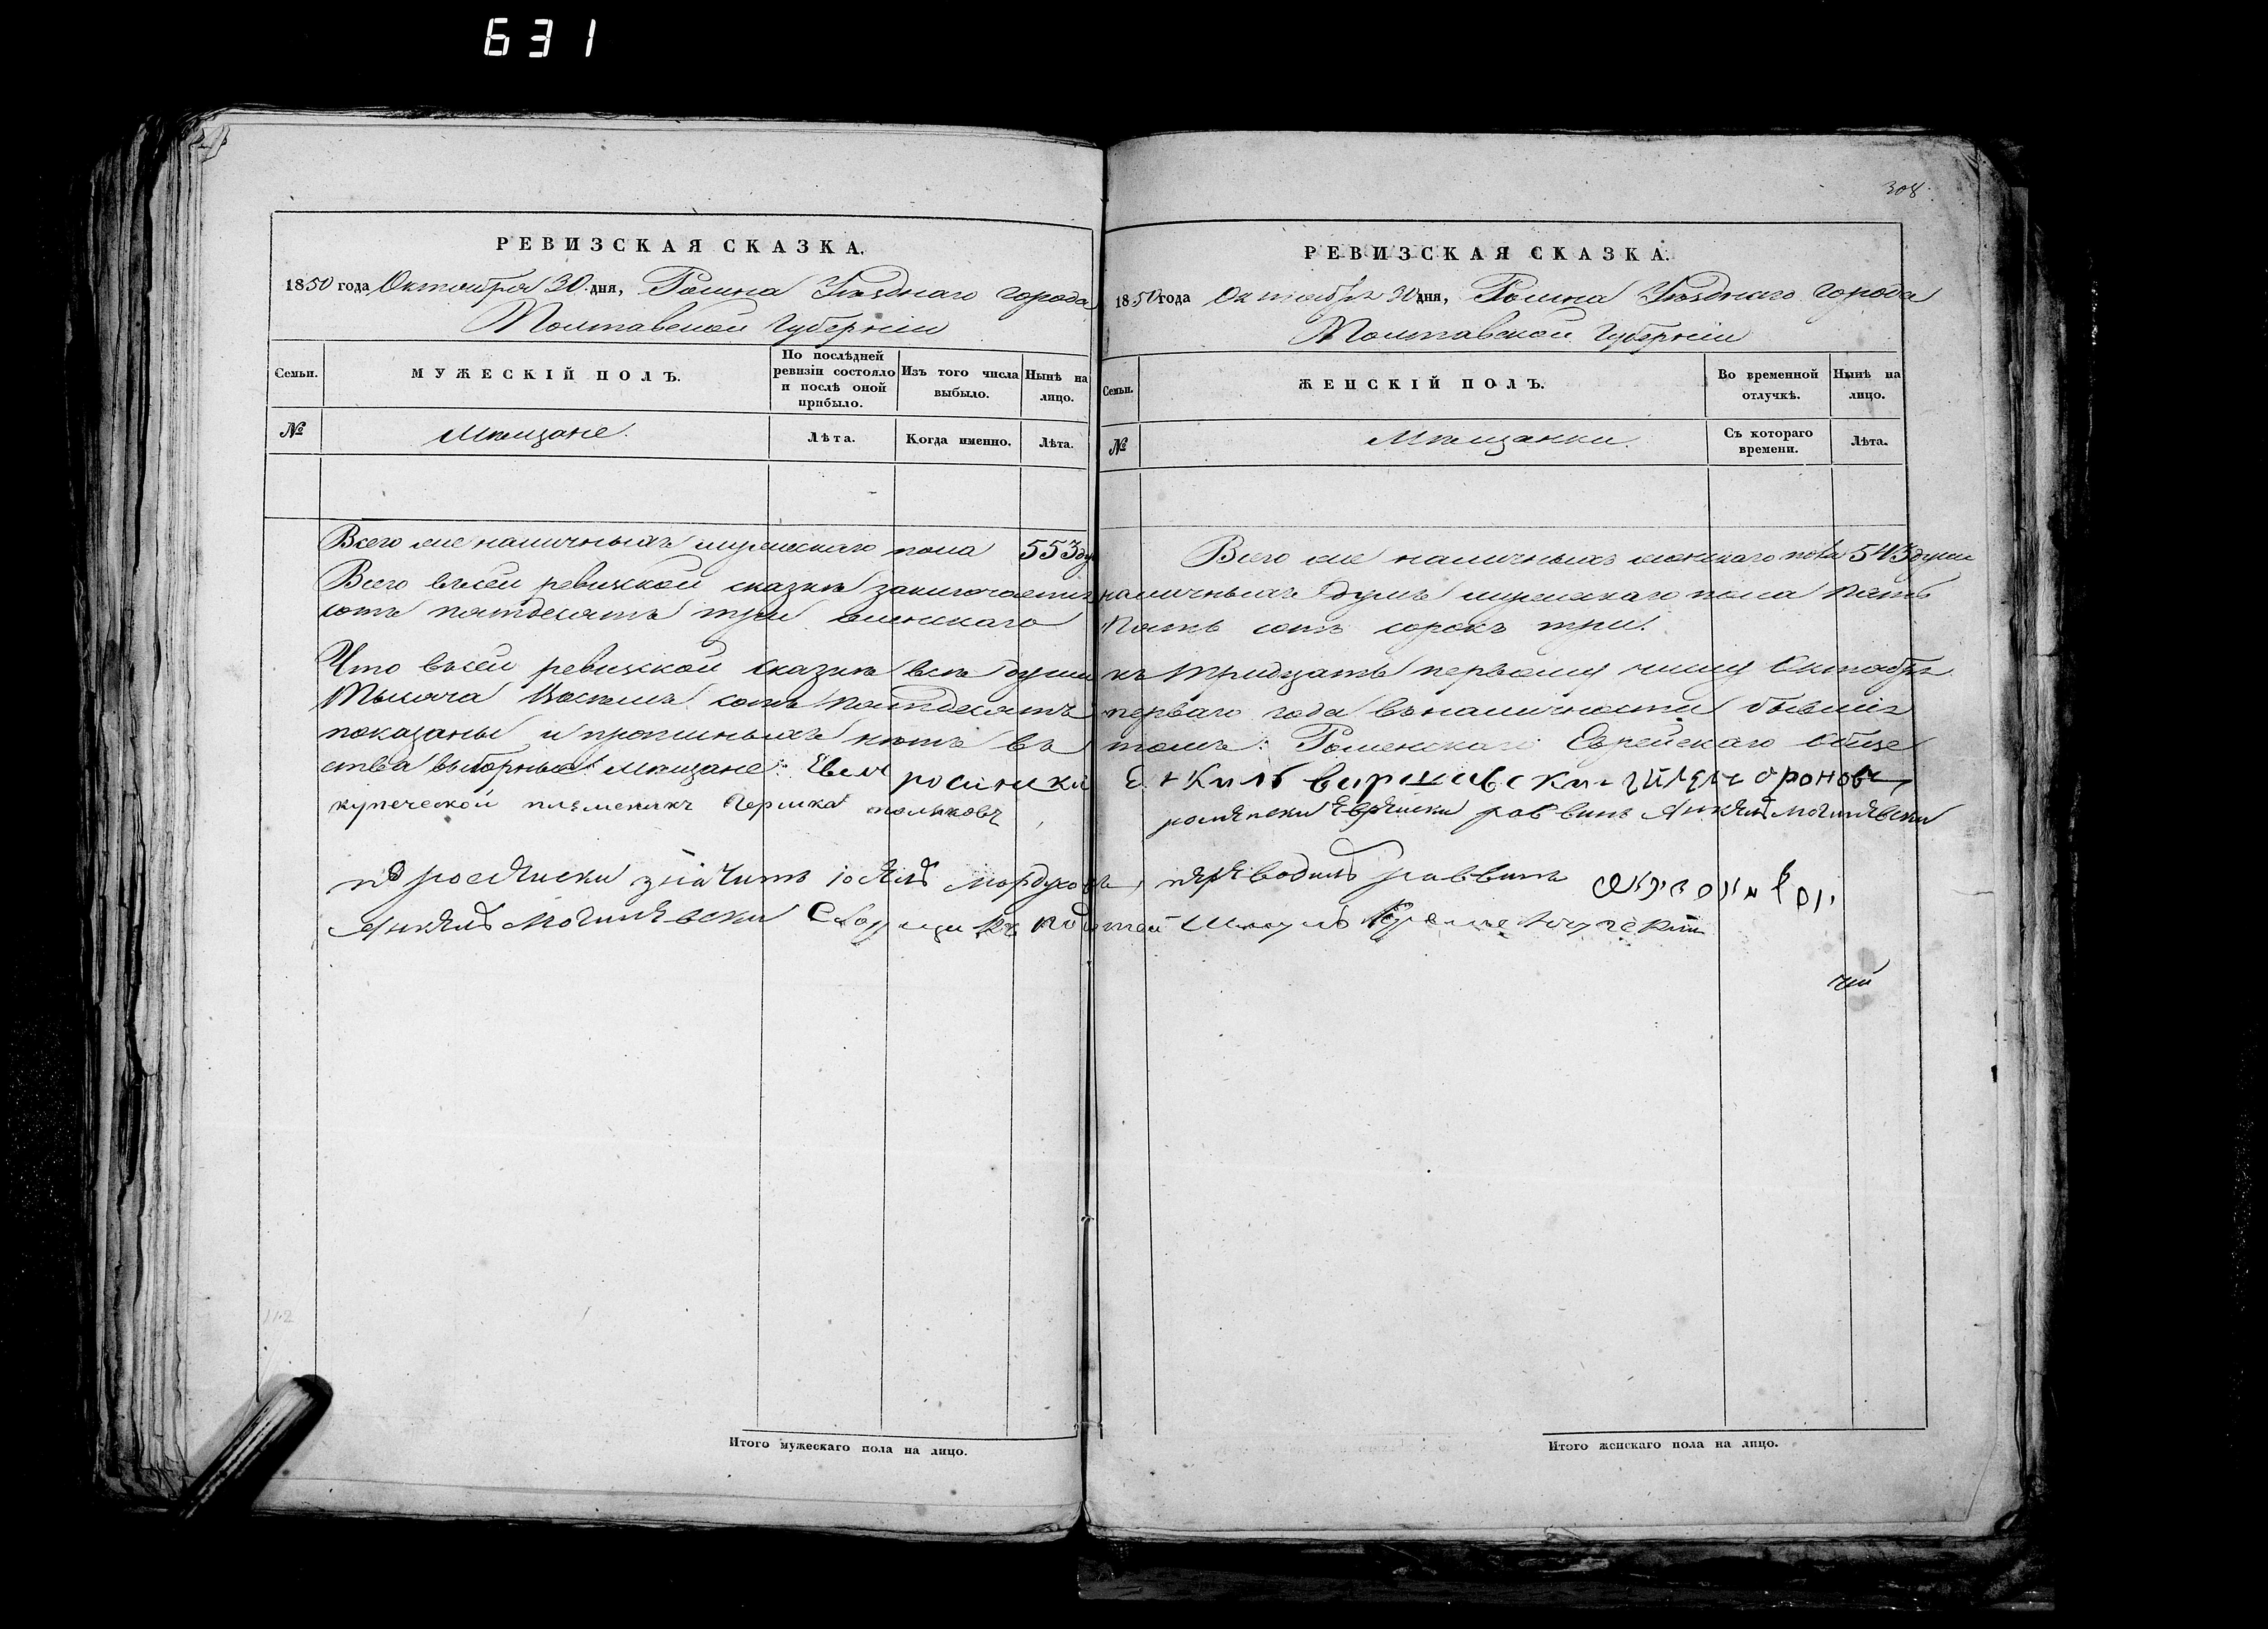 631
308.
РЕВИЗСКАЯ СКАЗКА.
1850 года Октября 30 дня, Ромна Уѣзднаго города
Полтавской Губерніи
Семьи.
МУЖЕСКІЙ ПОЛЪ.
По послѣдней ревизіи состояло и послѣ оной прибыло.
Изъ того числа выбыло.
Нынѣ на лицо.
№
Мѣщане.
Лѣта.
Когда именно.
Лѣта.
РЕВИЗСКАЯ СКАЗКА.
1850 года Октября 30 дня, Ромна Уѣзднаго города
Полтавской Губерніи
Семьи.
ЖЕНСКІЙ ПОЛЪ.
Во временной отлучкѣ.
Нынѣ на лицо.
№
Мѣщанки.
Съ котораго времени.
Лѣта.
Всего же наличныхъ мужескаго пола 553 ду
Всего же наличныхъ женскаго пола 543 души
Всего въ сей ревизской сказкѣ заключается наличныхъ душъ мужескаго пола пять
сотъ пятдесятъ три женскаго Пять сотъ сорокъ три.
Что въ сей ревизской сказкѣ всѣ души къ тридцать первому числу Октября
Тысяча Восемь сотъ пятдесятъ перваго года въ наличности бывшія
показаны и прописныхъ нѣтъ въ томъ: Роменскаго Еврейскаго Обще
ства выборные мѣщане:
купеческой племеникъ Гершка
раввинъ Анкель Могилевски
значитъ Мордухов переводилъ раввинъ
Анкель Могилевски
Итого мужескаго пола на лицо.
Итого женскаго пола на лицо.
112